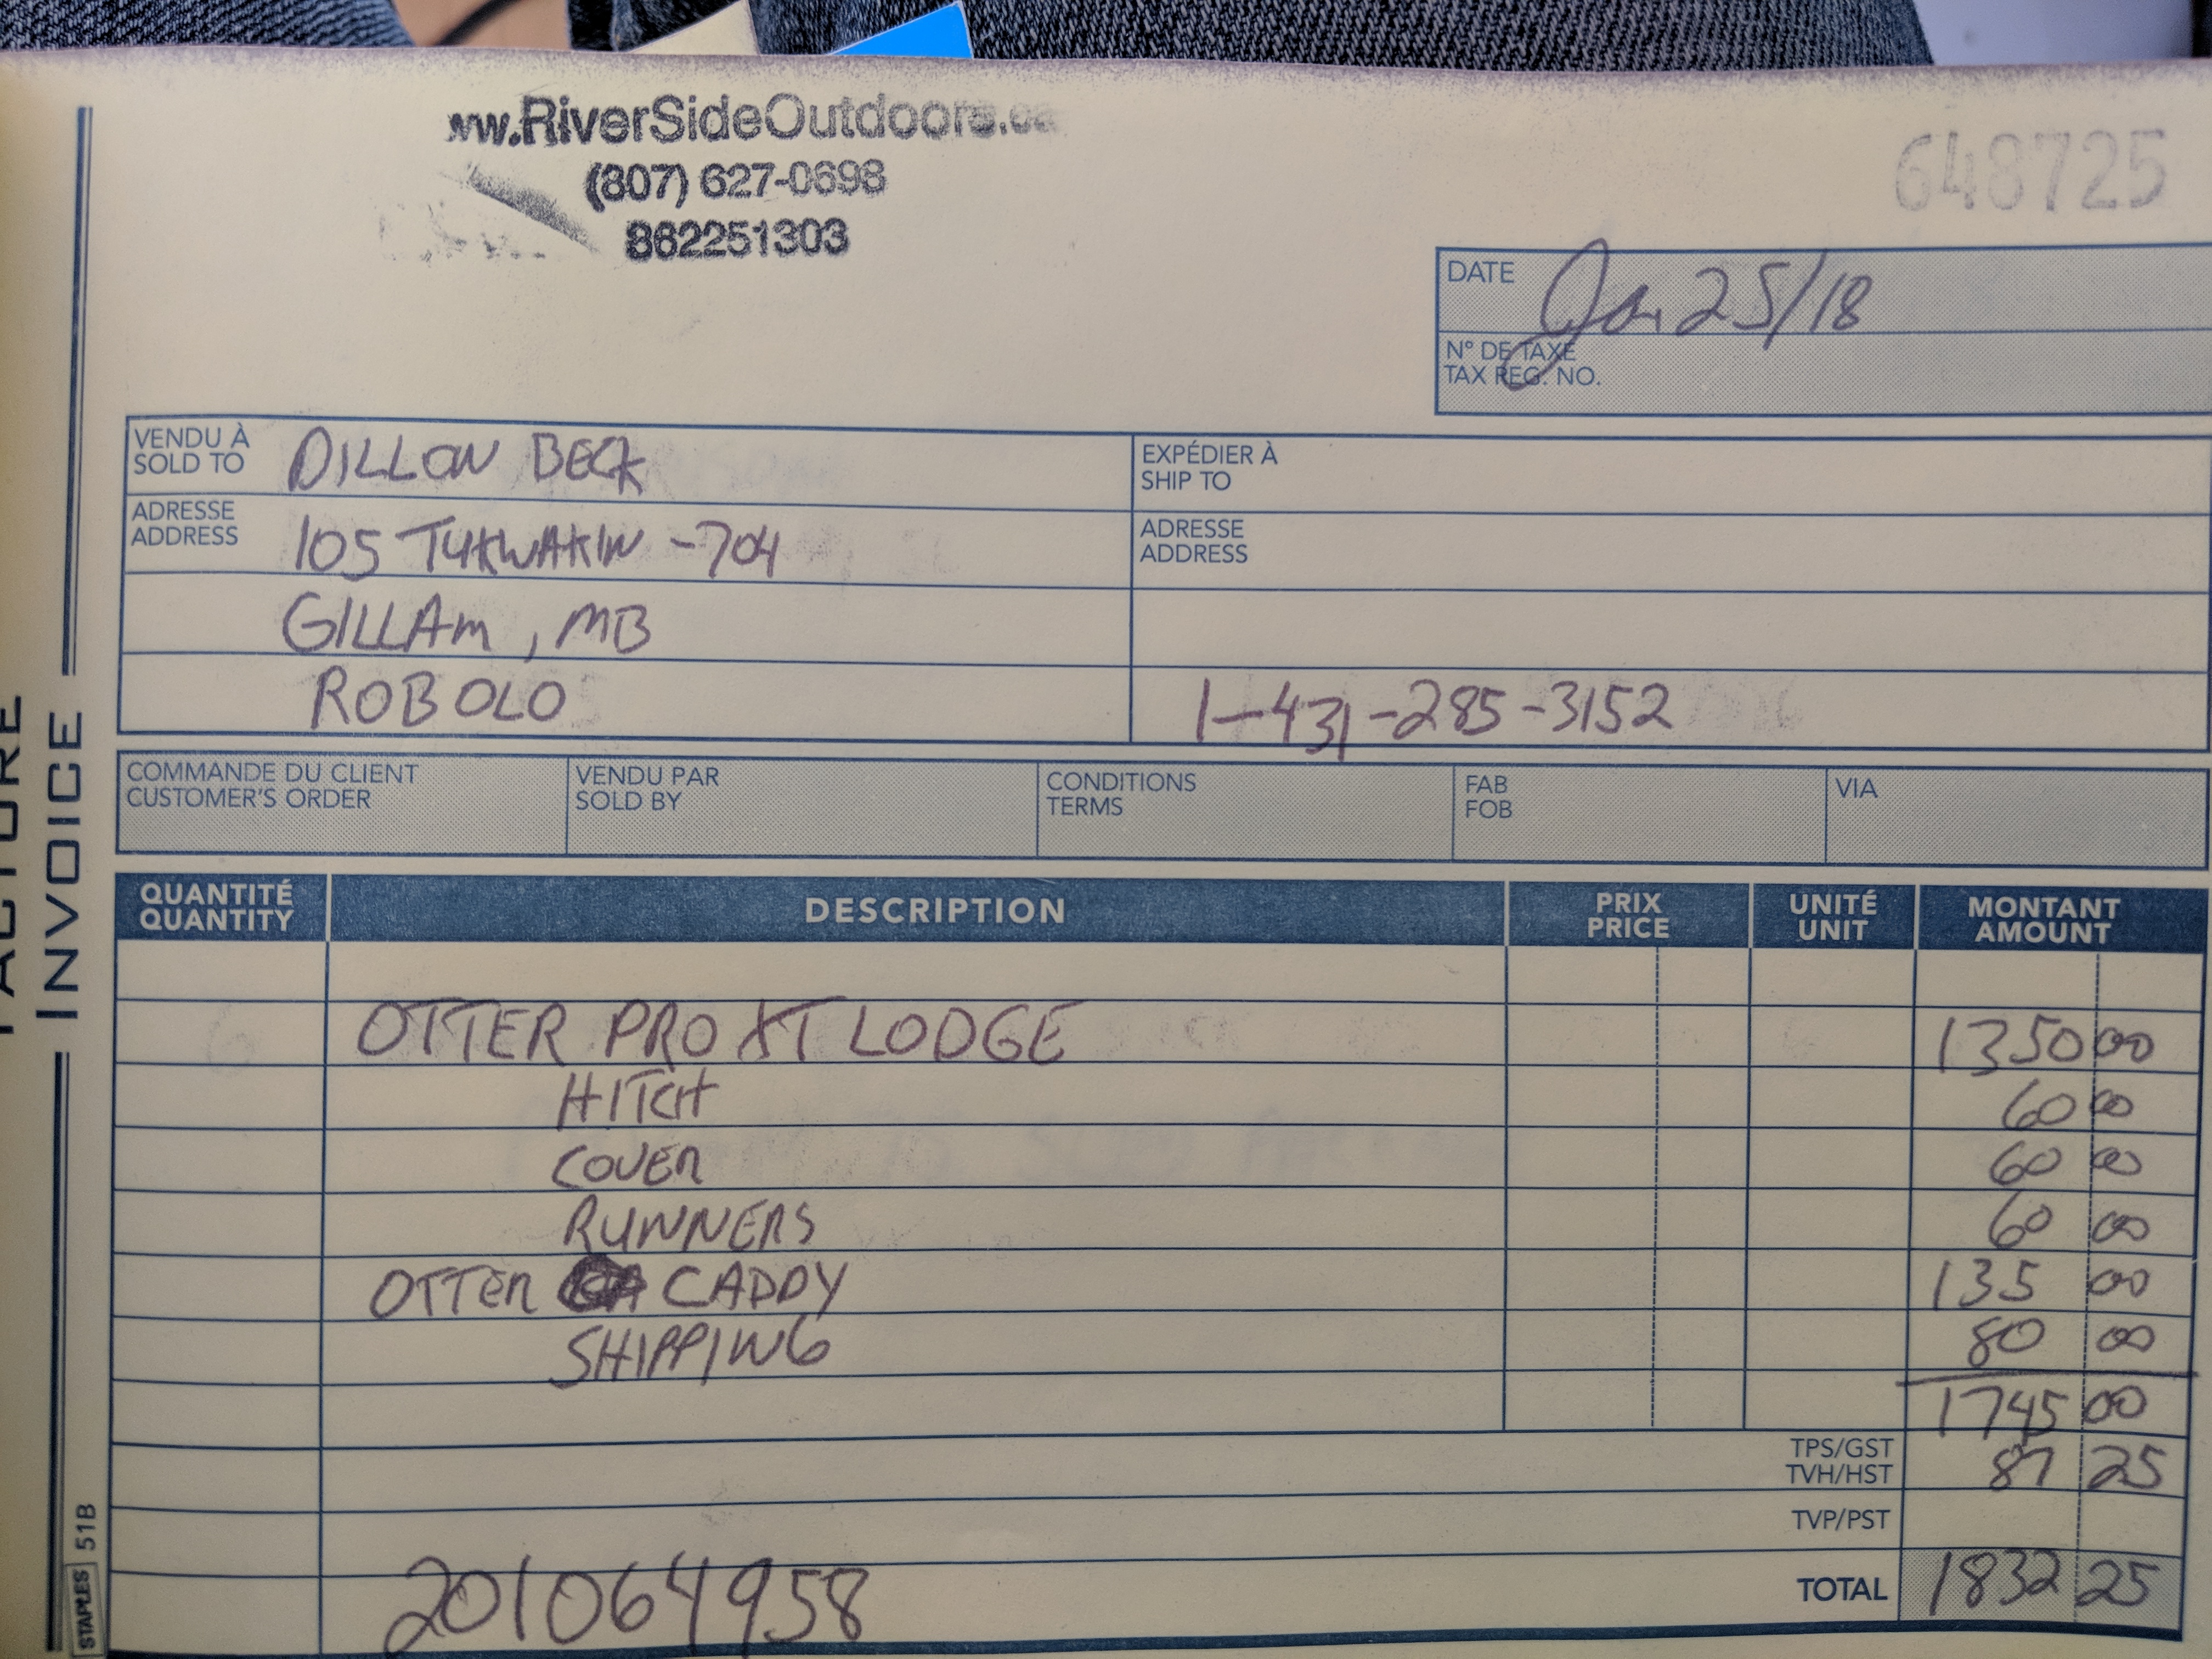 ww.RiverSideOutdoors.ca
(807) 627-0698
862251303
648725
DATE Jan 25/18
N° DE TAXE
TAX REG. NO.
VENDU À
SOLD TO DILLON BECK
ADRESSE
ADDRESS 105 -704
GILLAM, MB
ROB OLO
EXPÉDIER À
SHIP TO
ADRESSE
ADDRESS
1-431-285-3152
COMMANDE DU CLIENT
CUSTOMER'S ORDER
VENDU PAR
SOLD BY
CONDITIONS
TERMS
FAB
FOB
VIA
QUANTITÉ
QUANTITY
DESCRIPTION
PRIX
PRICE
UNITÉ
UNIT
MONTANT
AMOUNT
OTTER PRO XT LODGE 1350 00
HITCH 60 00
COVER 60 00
RUNNERS 60 00
OTTER CADDY 135 00
SHIPPING 80 00
1745 00
TPS/GST
TVH/HST 87 25
TVP/PST
TOTAL 1832 25
201064958
FACTURE
INVOICE
STAPLES 51B